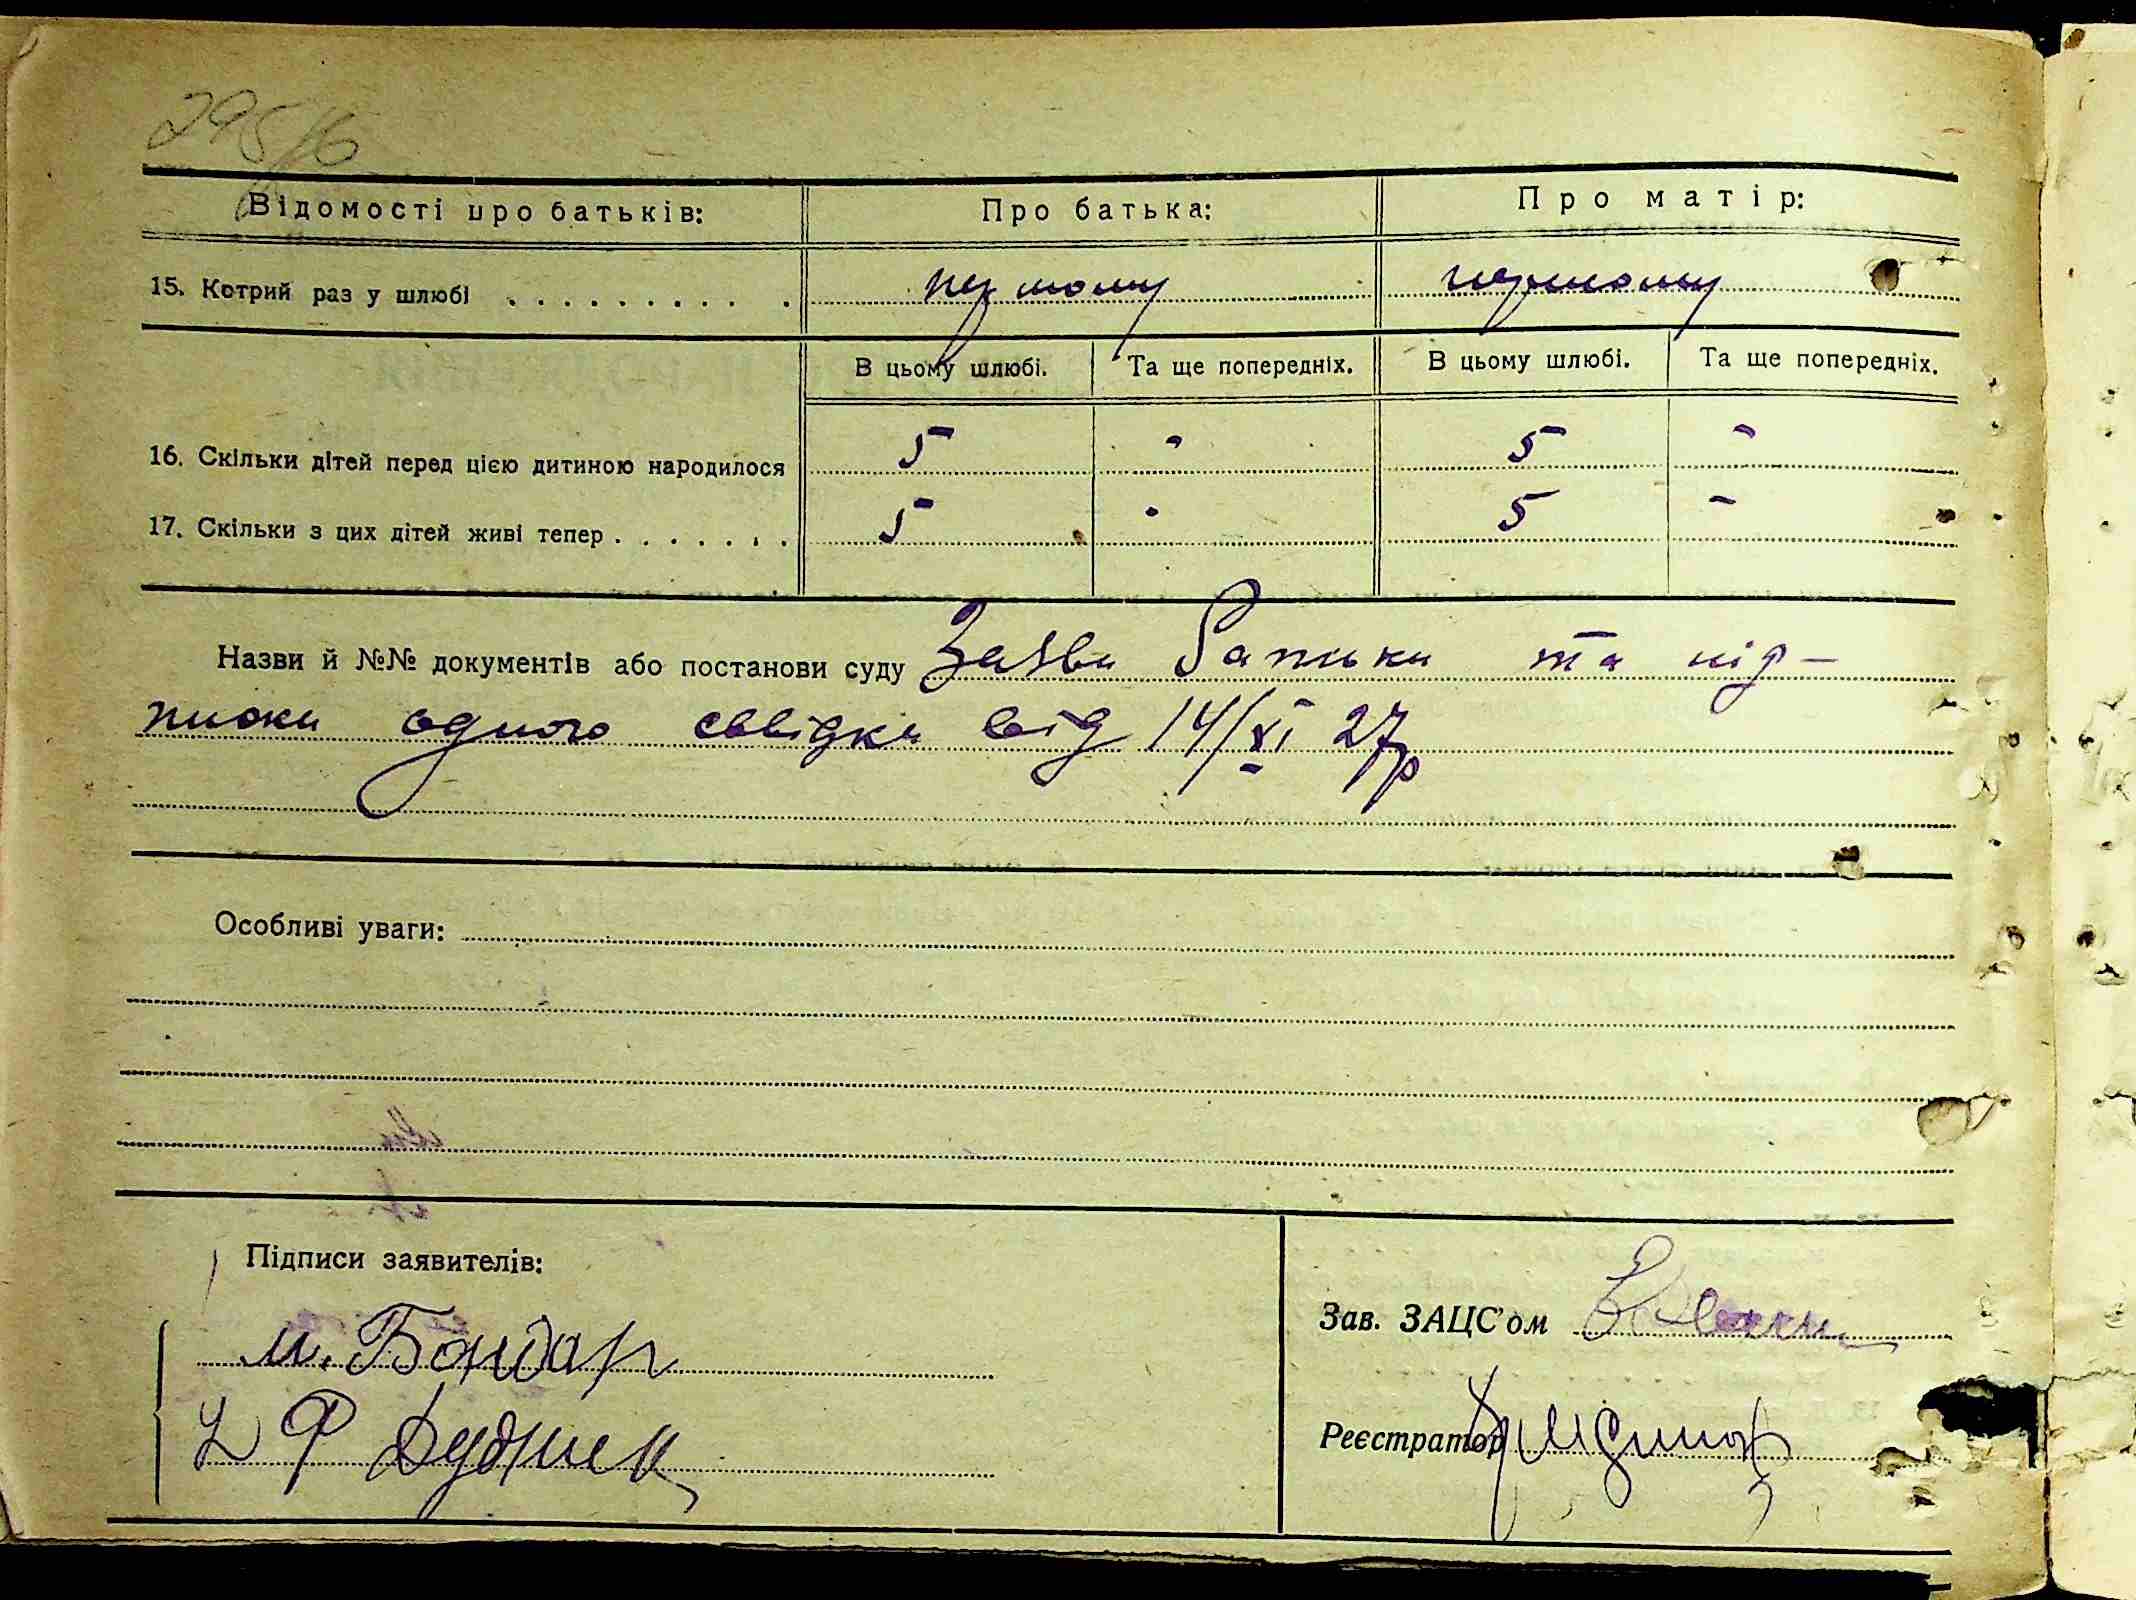 295/6
Відомості про батьків: Про батька: Про матір:
15. Котрий раз у шлюбі . . . . . . . . . . першому першому
В цьому шлюбі. Та ще попередніх. В цьому шлюбі. Та ще попередніх.
16. Скільки дітей перед цією дитиною народилося 5 - 5 -
17. Скільки з цих дітей живі тепер . . . . . . . 5 - 5 -
Назви й №№ документів або постанови суду Заява батька та під-
писки одного свідка від 14/XI 27р
Особливі уваги:
Підписи заявителів:
Зав. ЗАЦС'ом
м. Бондар
Реєстратор
Ф Дудник